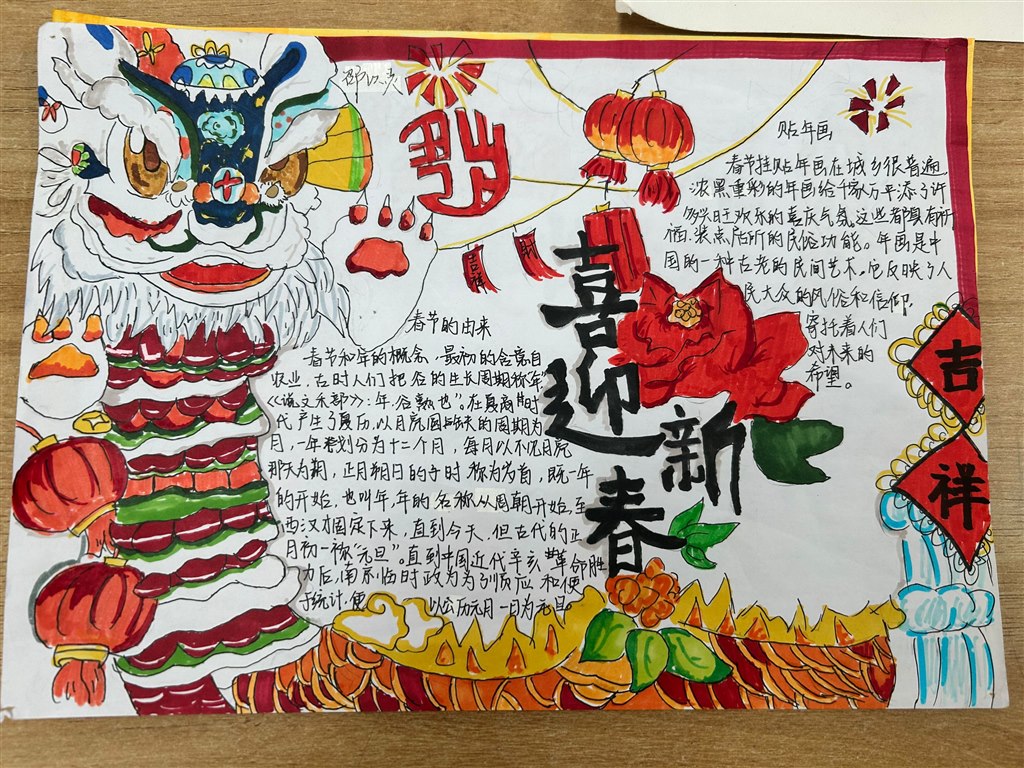 贴年画
春节挂贴年画在城乡很普遍
浓黑重彩的年画给千家万户平添了许
多兴旺欢乐的喜庆气氛,这些都具有祈
福、装点居所的民俗功能。年画是中
国的一种古老的民间艺术,它反映了人
民大众的风俗和信仰,
寄托着人们
对未来的
希望。
吉祥
喜迎新春
吉祥
春节的由来
春节和年的概念,最初的含意自
农业,在时人们把谷的生长周期称"年"
《说文禾部》:年.谷熟也"。在夏商时
代产生了夏历,以月亮圆缺的周期为
月,一年划分为十二个月,每月以不见月亮
那天为期,正月朔日的子时称为岁首,既一年
的开始,也叫年,年的名称从周朝开始,至
西汉才固定下来,直到今天,但古代的正
月初一称"元旦"。直到中国近代辛亥革命胜
力后,南京临时政为为了顺应和便
于统计,便 以公历元月一日为元旦。